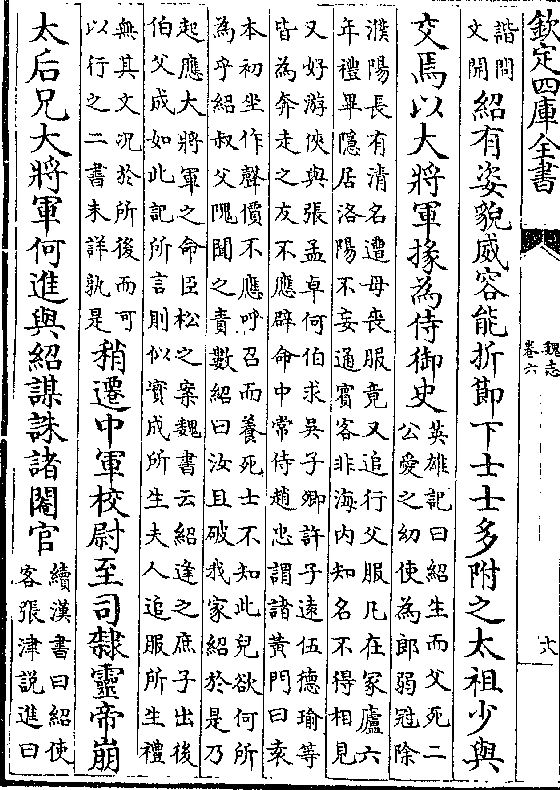 欽定四庫全書
魏志
卷六
諧問
文開
紹有姿貌威容能折節下士士多附之太祖少與
交焉以大將軍掾為侍御史
英雄記曰紹生而父死二
公愛之幼使為郎弱冠除
濮陽長有清名遭母喪服竟又追行父服凡在冢廬六
年禮畢隱居洛陽不妄通賓客非海内知名不得相見
又好游俠與張孟卓何伯求吳子卿許子遠伍德瑜等
皆為奔走之友不應辟命中常侍趙忠謂諸黄門曰袁
本初坐作聲價不應呼召而養死士不知此兒欲何所
為乎紹叔父隗聞之責數紹曰汝且破我家紹於是乃
起應大將軍之命臣松之案魏書云紹逢之庶子出後
伯父成如此記所言則似實成所生夫人追服所生禮
無其文况於所後而可
以行之二書未詳孰是
稍遷中軍校尉至司隸靈帝崩
太后兄大將軍何進與紹謀誅諸閹官
續漢書曰紹使
客張津説進曰